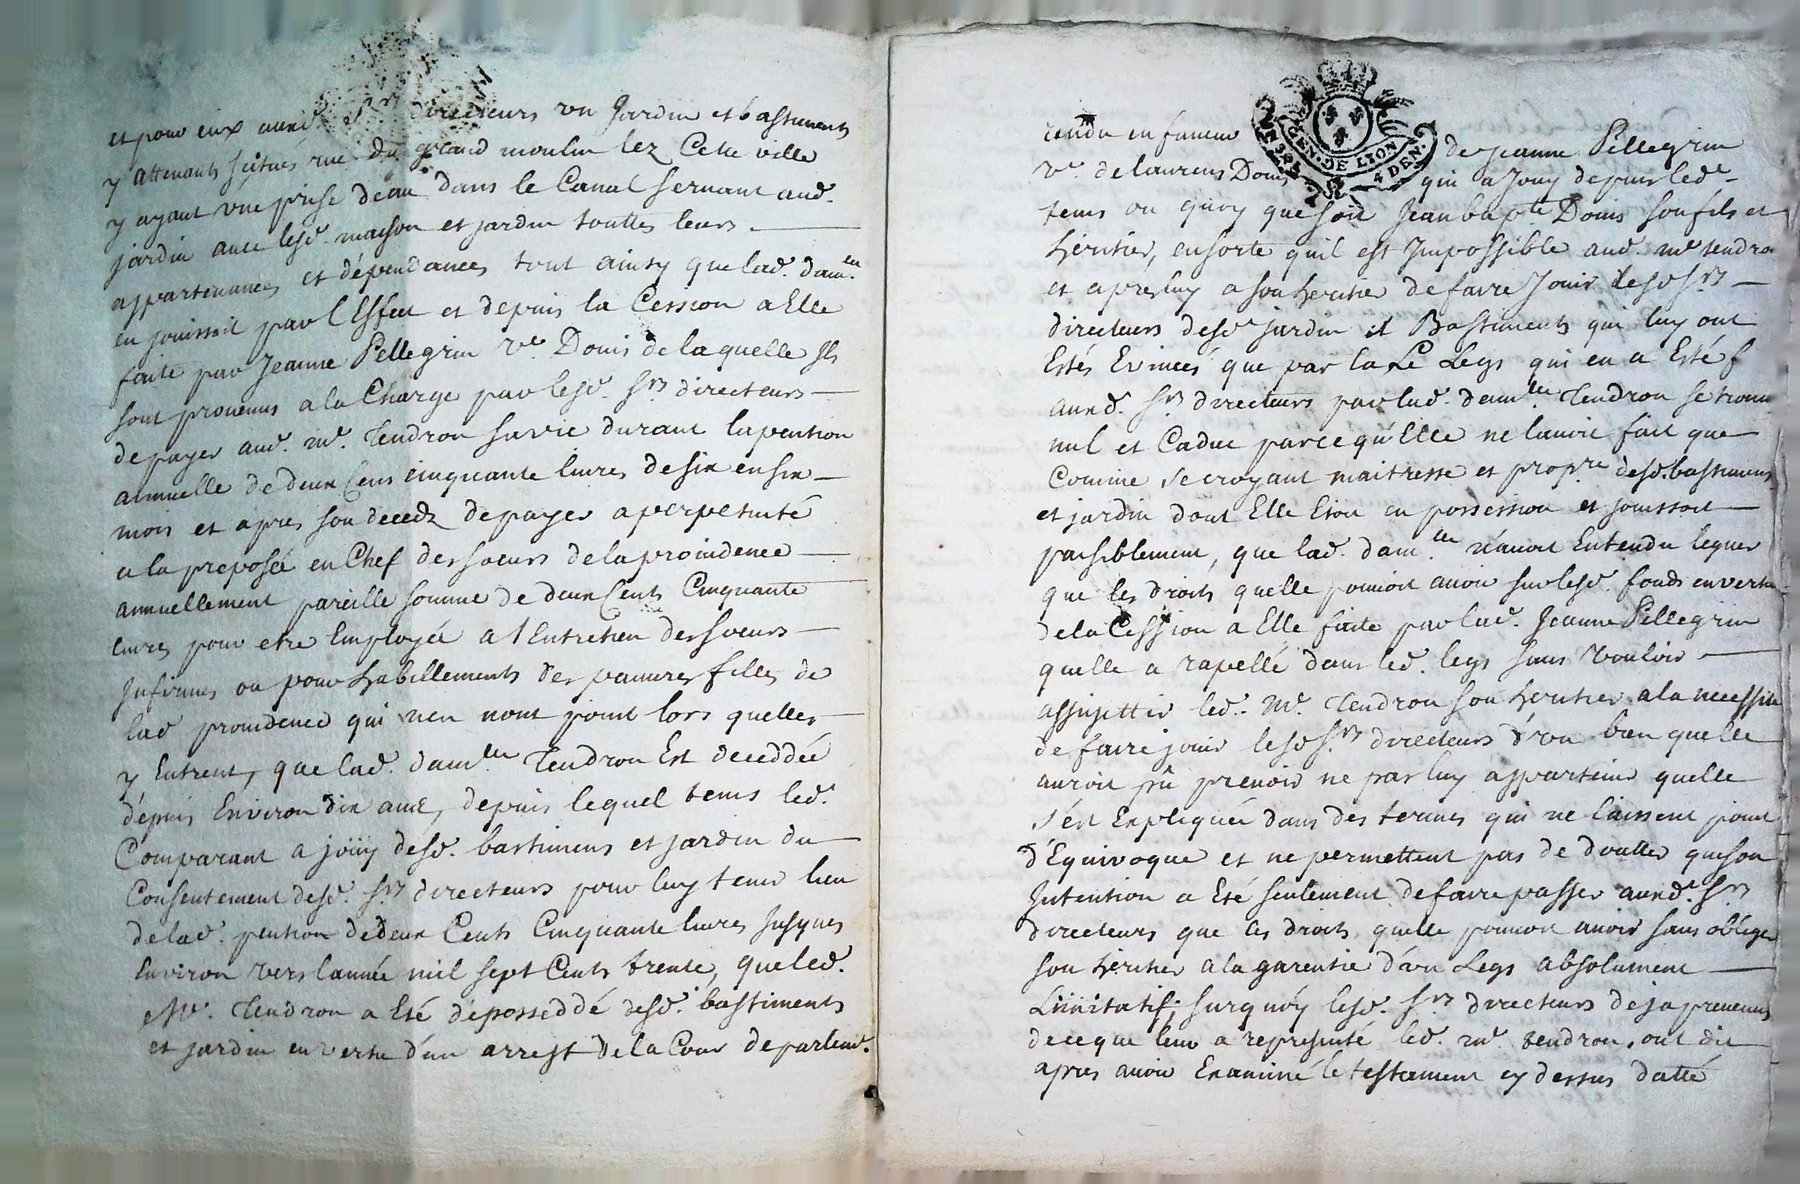 et pour eux aux d. Srs directeurs un Jardin et bastiments
y attenants scitués rue du grand moulin lez Cette ville
y ayant une prise d'eau dans le Canal servant aud.
jardin avec lesd. maison et jardin touttes leurs
appartenances et dépendances tout ainsy que lad. damlle
en jouissoit par l'Effect et depuis la Cession a Elle
faite par Jeanne Pellegrin Ve Donis de laquelle Ils
sont provenus a la Charge par lesd. Srs directeurs
de payer aud. Me. Tendron sa vie durant la pention
annuelle de deux Cens cinquante livres de six en six
mois et apres son decedz de payer a perpetuité
a la preposée en Chef des soeurs de la providence
annuellement pareille somme de deux Cents Cinquante
livres pour etre Employée a l'Entretien des soeurs
Infirmes ou pour habillements des pauvres filles de
lad providence qui n'en n'ont point lors quelles
y Entrent, que lad. damlle Tendron Est deceddée
dépuis Environ dix ans, depuis lequel tems led.
Comparant a joüy desd. bastimens et jardin du
Consentement desd. Srs directeurs pour luy tenir lieu
de lad. pention de deux Cents Cinquante livres Jusques
Environ vers l'année mil sept Cents trente, que led.
Me. Tendron a Eté dépossedé desd. bastiments
et jardin en vertu d'un arrest de la Cour de parlemt.
rendu en faveur de Jeanne Pellegrin
Ve. de Laurens Donis qui a Jouy depuis led.
tems ou quoy que soit Jean bapte Donis son fils et
héritier, en sorte quil est Impossible aud. Me tendron
et apres luy a son heritier de faire Jouir lesd Srs
directeurs desd jardin et Bastiments qui luy ont
Estés Evincés que par la Le Legs qui en a Esté f
auxd. Srs directeurs par lad. damlle Tendron se trouve
nul et Caduc parce qu'Elle ne l'avoit fait que
Comme se croyant maitresse et propre desd. bastimens
et jardin dont Elle Etoit en possession et jouissoit
paisiblement, que lad. damlle n'avoit Entendu leguer
que les droits quelle pouvoit avoir sur lesd. fonds en vertu
de la Cession a Elle faite par lad. Jeanne Pellegrin
quelle a rapellé dans led. legs sans vouloir
assujettir led. Me. Tendron son heritier a la necessité
de faire jouir lesd Srs directeurs d'un bien quelle
auroit pû prevoir ne pas luy appartenir quelle
s'ést Expliquée dans des termes qui ne laissent point
d'Equivoque et ne permettent pas de doutter que son
Intention a Eté seulement de faire passer auxd. Srs
directeurs que les droits quelle pouvoit avoir sans obliger
son heritier a la garentie d'un Legs absolument
Limitatif; surquoy lesd. Srs directeurs deja prevenus
de ce que leur a representé led. Me. tendron, ont dit
apres avoir Examiné le testament cy dessus datté
GEN. DE LION
4 DEN.